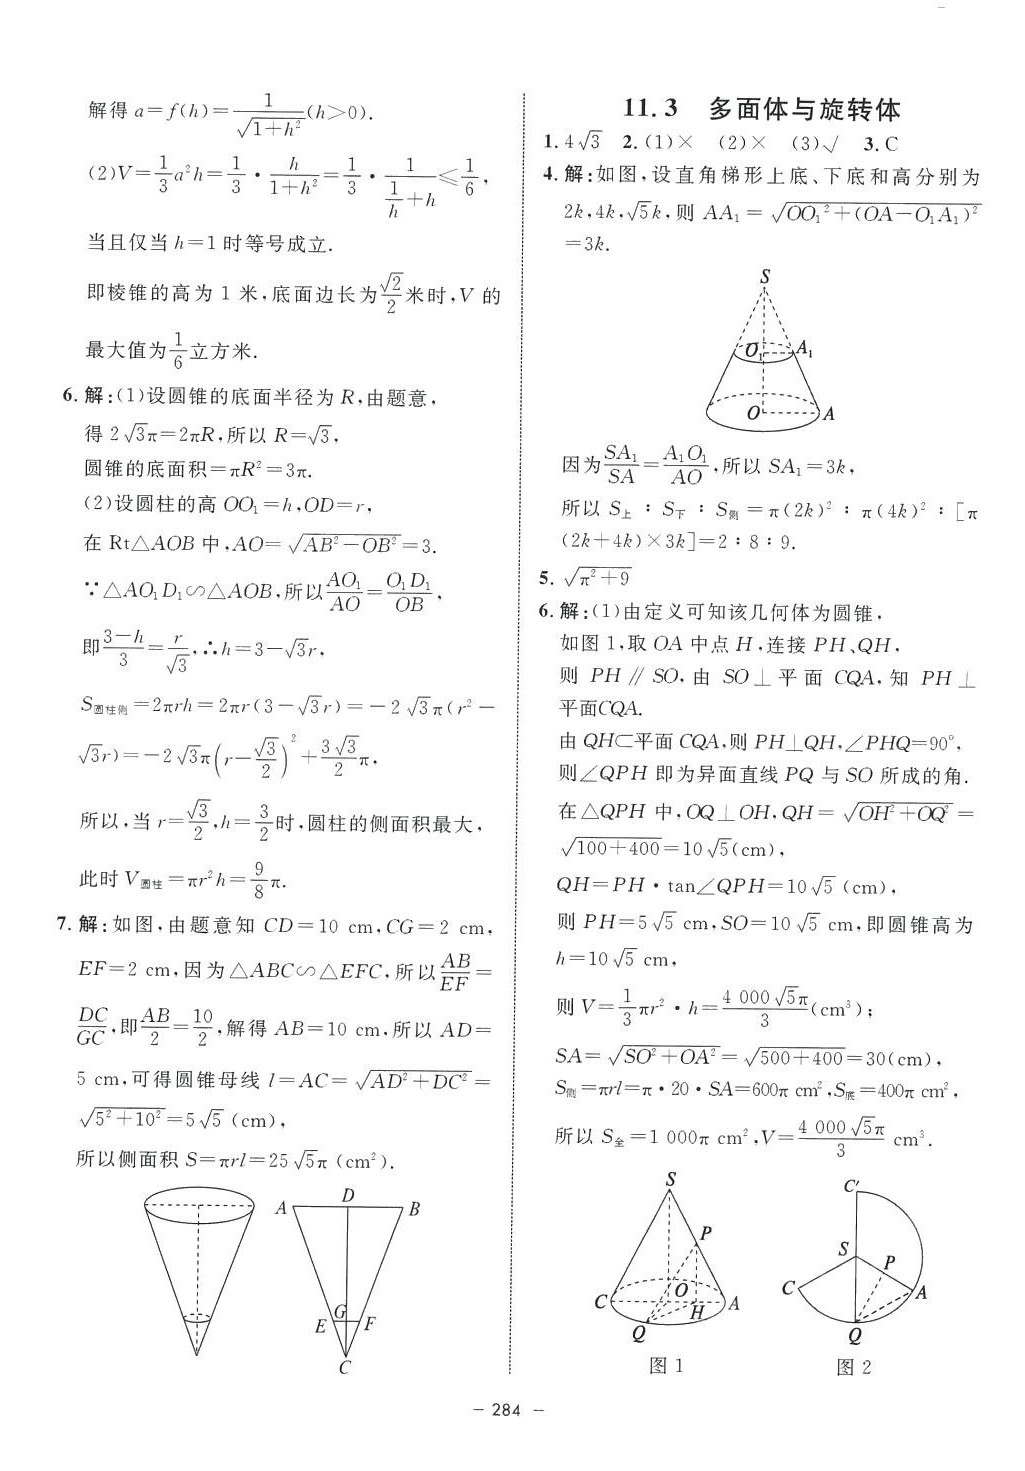 解得 a=f(h)=\frac{1}{\sqrt{1+h^2}}(h>0).
(2)V=\frac{1}{3}a^2h=\frac{1}{3}·\frac{h}{1+h^2}=\frac{1}{3}·\frac{1}{\frac{1}{h}+h}≤\frac{1}{6},
当且仅当 h=1 时等号成立.
即棱锥的高为 1 米,底面边长为\frac{\sqrt{2}}{2}米时,V 的
最大值为\frac{1}{6}立方米.
6.解:(1)设圆锥的底面半径为 R,由题意,
得 2\sqrt{3}π=2πR,所以 R=\sqrt{3},
圆锥的底面积=πR^2=3π.
(2)设圆柱的高 OO_1=h,OD=r,
在 Rt△AOB 中,AO=\sqrt{AB^2-OB^2}=3.
∵△AO_1D_1∽△AOB,所以\frac{AO_1}{AO}=\frac{O_1D_1}{OB},
即\frac{3-h}{3}=\frac{r}{\sqrt{3}},∴h=3-\sqrt{3}r,
S_{圆柱侧}=2πrh=2πr(3-\sqrt{3}r)=-2\sqrt{3}π(r^2-
\sqrt{3}r)=-2\sqrt{3}π(r-\frac{\sqrt{3}}{2})^2+\frac{3\sqrt{3}}{2}π,
所以,当 r=\frac{\sqrt{3}}{2},h=\frac{3}{2}时,圆柱的侧面积最大,
此时 V_{圆柱}=πr^2h=\frac{9}{8}π.
7.解:如图,由题意知 CD=10 cm,CG=2 cm,
EF=2 cm,因为△ABC∽△EFC,所以\frac{AB}{EF}=
\frac{DC}{GC},即\frac{AB}{2}=\frac{10}{2},解得 AB=10 cm,所以 AD=
5 cm,可得圆锥母线 l=AC=\sqrt{AD^2+DC^2}=
\sqrt{5^2+10^2}=5\sqrt{5}(cm),
所以侧面积 S=πrl=25\sqrt{5}π(cm^2).
A
D
B
G
E
F
C
11.3 多面体与旋转体
1.4\sqrt{3} 2.(1)× (2)× (3)√ 3.C
4.解:如图,设直角梯形上底、下底和高分别为
2k,4k,\sqrt{5}k,则 AA_1=\sqrt{OO_1^2+(OA-O_1A_1)^2}
=3k.
S
O_1
A_1
O
A
因为\frac{SA_1}{SA}=\frac{A_1O_1}{AO},所以 SA_1=3k,
所以 S_上∶S_下∶S_侧=π(2k)^2∶π(4k)^2∶[π
(2k+4k)×3k]=2∶8∶9.
5.\sqrt{π^2+9}
6.解:(1)由定义可知该几何体为圆锥,
如图 1,取 OA 中点 H,连接 PH、QH,
则 PH∥SO,由 SO⊥平面 CQA,知 PH⊥
平面CQA.
由 QH⊂平面 CQA,则 PH⊥QH,∠PHQ=90°,
则∠QPH 即为异面直线 PQ 与 SO 所成的角.
在△QPH 中,OQ⊥OH,QH=\sqrt{OH^2+OQ^2}=
\sqrt{100+400}=10\sqrt{5}(cm),
QH=PH·tan∠QPH=10\sqrt{5}(cm),
则 PH=5\sqrt{5} cm,SO=10\sqrt{5} cm,即圆锥高为
h=10\sqrt{5} cm,
则 V=\frac{1}{3}πr^2·h=\frac{4 000\sqrt{5}π}{3}(cm^3);
SA=\sqrt{SO^2+OA^2}=\sqrt{500+400}=30(cm),
S_侧=πrl=π·20·SA=600π cm^2,S_底=400π cm^2,
所以 S_全=1 000π cm^2,V=\frac{4 000\sqrt{5}π}{3} cm^3.
S
P
C
O
H
A
Q
图 1
C′
S
P
C
A
Q
图 2
- 284 -